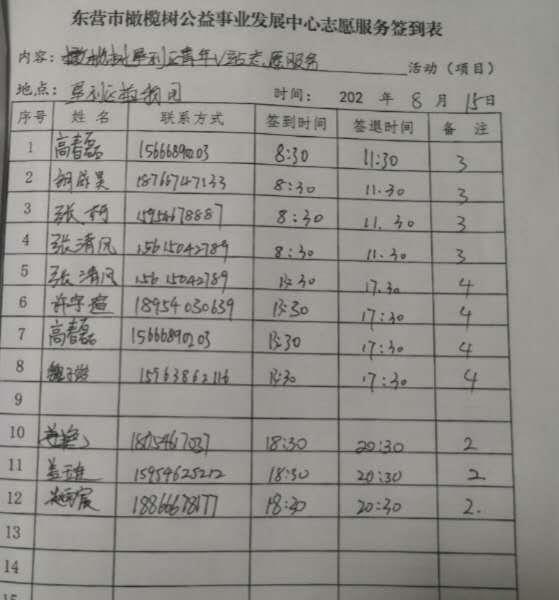 东营市橄榄树公益事业发展中心志愿服务签到表
内容：橄榄树垦利区青年V站志愿服务 活动（项目）
地点：垦利区 时间： 202 年 8 月 15日
序号 姓 名 联系方式 签到时间 签退时间 备 注
1 高春磊 15666890203 8:30 11:30 3
2 18766747133 8:30 11.30 3
3 张 8:30 11.30 3
4 张清风 15615042789 8:30 11.30 3
5 张清风 15615042789 13:30 17.30 4
6 许宇 18954030639 13:30 17:30 4
7 高春磊 15666890203 13:30 17:30 4
8 15963862116 13:30 17:30 4
9
10 18:30 20:30 2
11 15954625212 18:30 20:30 2
12 18866678177 18:30 20:30 2.
13
14